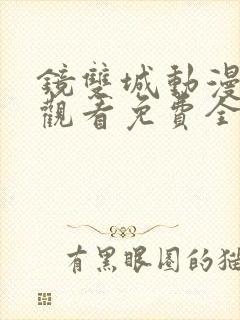 鏡雙城動漫
觀看免費全
有黑眼圈的貓